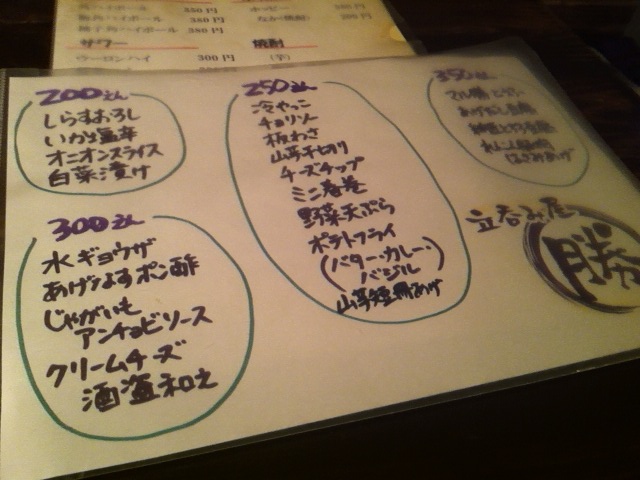 角ハイボール 350円
梅角ハイボール 380円
柚子角ハイボール 380円
ホッピー
なか(焼酎) 200円
サワー
焼酎
ウーロンハイ 300円
(芋)
200えん
しらすおろし
いか塩辛
オニオンスライス
白菜漬け
300えん
水ギョウザ
あげなすポン酢
じゃがいも
アンチョビソース
クリームチーズ
酒盗和え
250えん
冷やっこ
チョリソー
板わさ
山芋千切り
チーズチップ
ミニ春巻
野菜天ぷら
ポテトフライ
(バター・カレー・
バジル)
山芋短冊あげ
350えん
はさみあげ
立呑み屋
勝